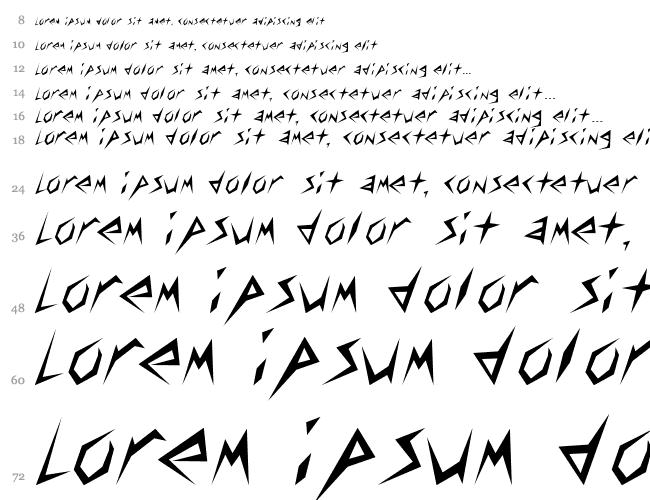 8 Lorem ipsum dolor sit amet, consectetuer adipiscing elit
10 Lorem ipsum dolor sit amet, consectetuer adipiscing elit
12 Lorem ipsum dolor sit amet, consectetuer adipiscing elit...
14 Lorem ipsum dolor sit amet, consectetuer adipiscing elit...
16 Lorem ipsum dolor sit amet, consectetuer adipiscing elit...
18 Lorem ipsum dolor sit amet, consectetuer adipiscing eli
24 Lorem ipsum dolor sit amet, consectetuer
36 Lorem ipsum dolor sit amet,
48 Lorem ipsum dolor sit
60 Lorem ipsum dolor
72 Lorem ipsum do